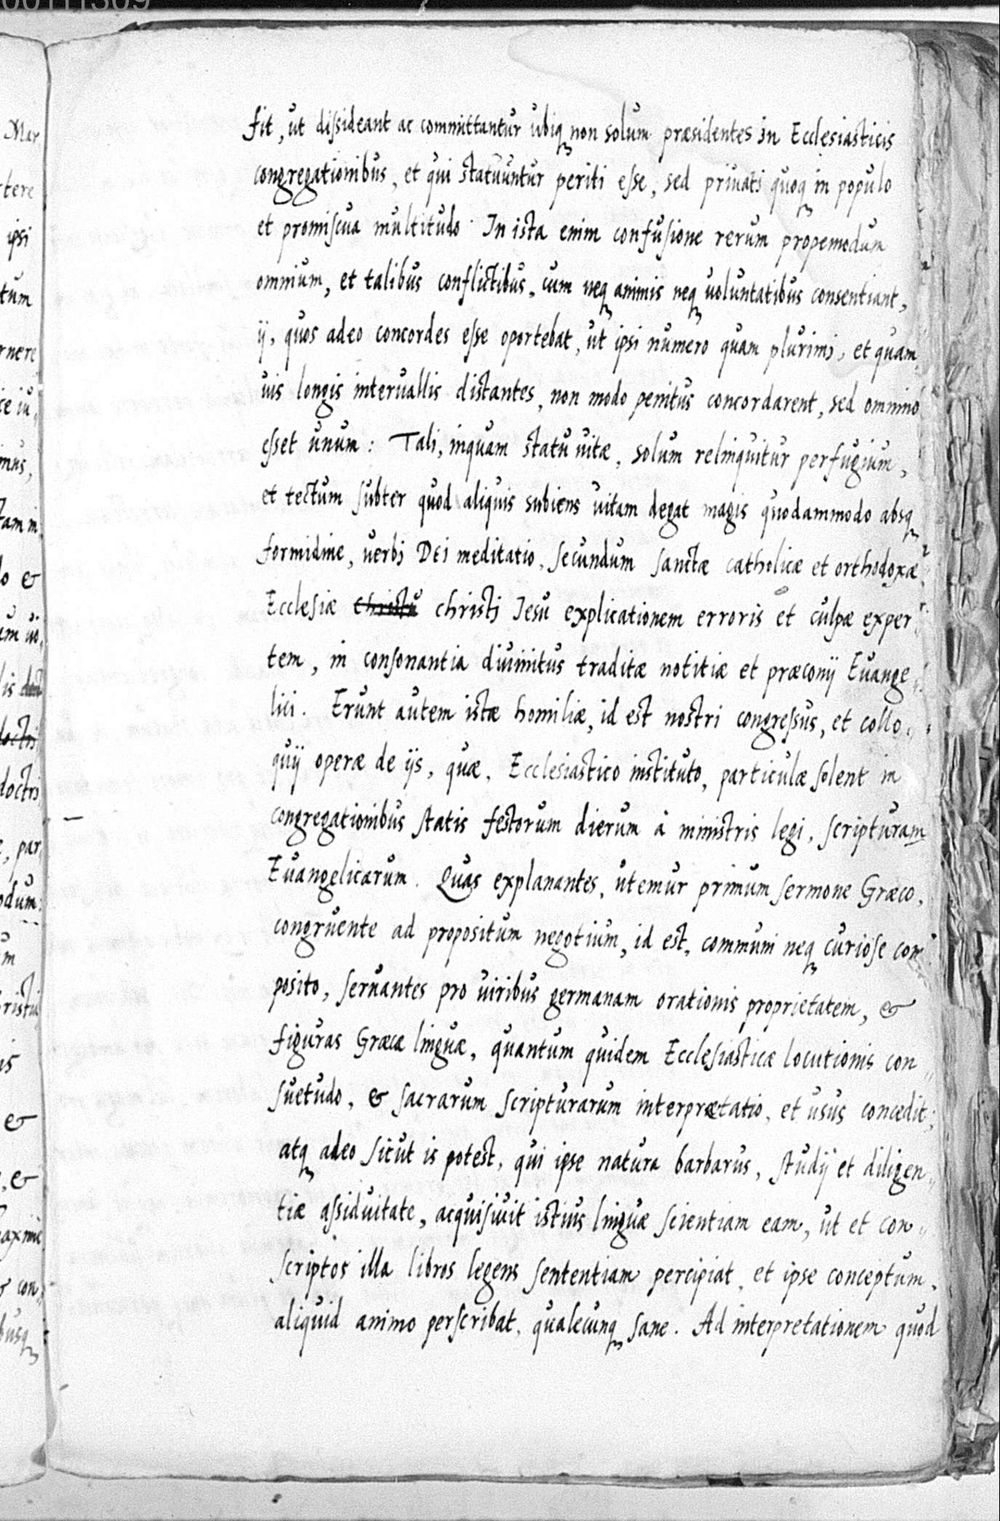 fit, ut dissideant ac committantur ubiq non solum praesidentes in Ecclesiasticis
congregationibus, et qui statuuntur periti esse, sed priuati quoq in populo
et promiscua multitudo. In ista enim confusione rerum propemodum
omnium, et talibus conflictibus, cum neq animis neq uoluntatibus consentiant,
ij, quos adeo concordes esse oportebat, ut ipsi numero quam plurimi, et quam
uis longis interuallis distantes, non modo penitus concordarent, sed omnino
esset unum: Tali, inquam statu uitæ, solum relinquitur perfugium,
et tectum subter quod aliquis subiens uitam degat magis quodammodo absq
formidine, uerbj DEI meditatio, secundum sanctæ catholicæ et orthodoxæ
Ecclesiæ Christi christj Iesu explicationem erroris et culpæ exper
tem, in consonantia diuinitus traditæ notitiæ et præconij Euange,
lici. Erunt autem istæ homiliæ, id est nostri congressus, et collo,
quij operæ de ijs, quæ, Ecclesiastico instituto, particulæ solent in
congregationibus statis festorum dierum à ministris legi, scripturam
Euangelicarum. Quas explanantes, utemur primum sermone Græco,
congruente ad propositum negotium, id est, communi neq curiose com
posito, seruantes pro uiribus germanam orationis proprietatem, &
figuras Græcæ linguæ, quantum quidem Ecclesiasticæ locutionis con,,
suetudo, & sacrarum scripturarum interprætatio, et usus concedit;
atq adeo sicut is potest, qui ipse natura barbarus, studij et diligen,,
tiæ assiduitate, acquisiuit istius linguæ scientiam eam, ut et con,,
scriptos illa libros legens sententiam percipiat, et ipse conceptum
aliquid animo perscribat, qualecunq sane. Ad interpretationem quod